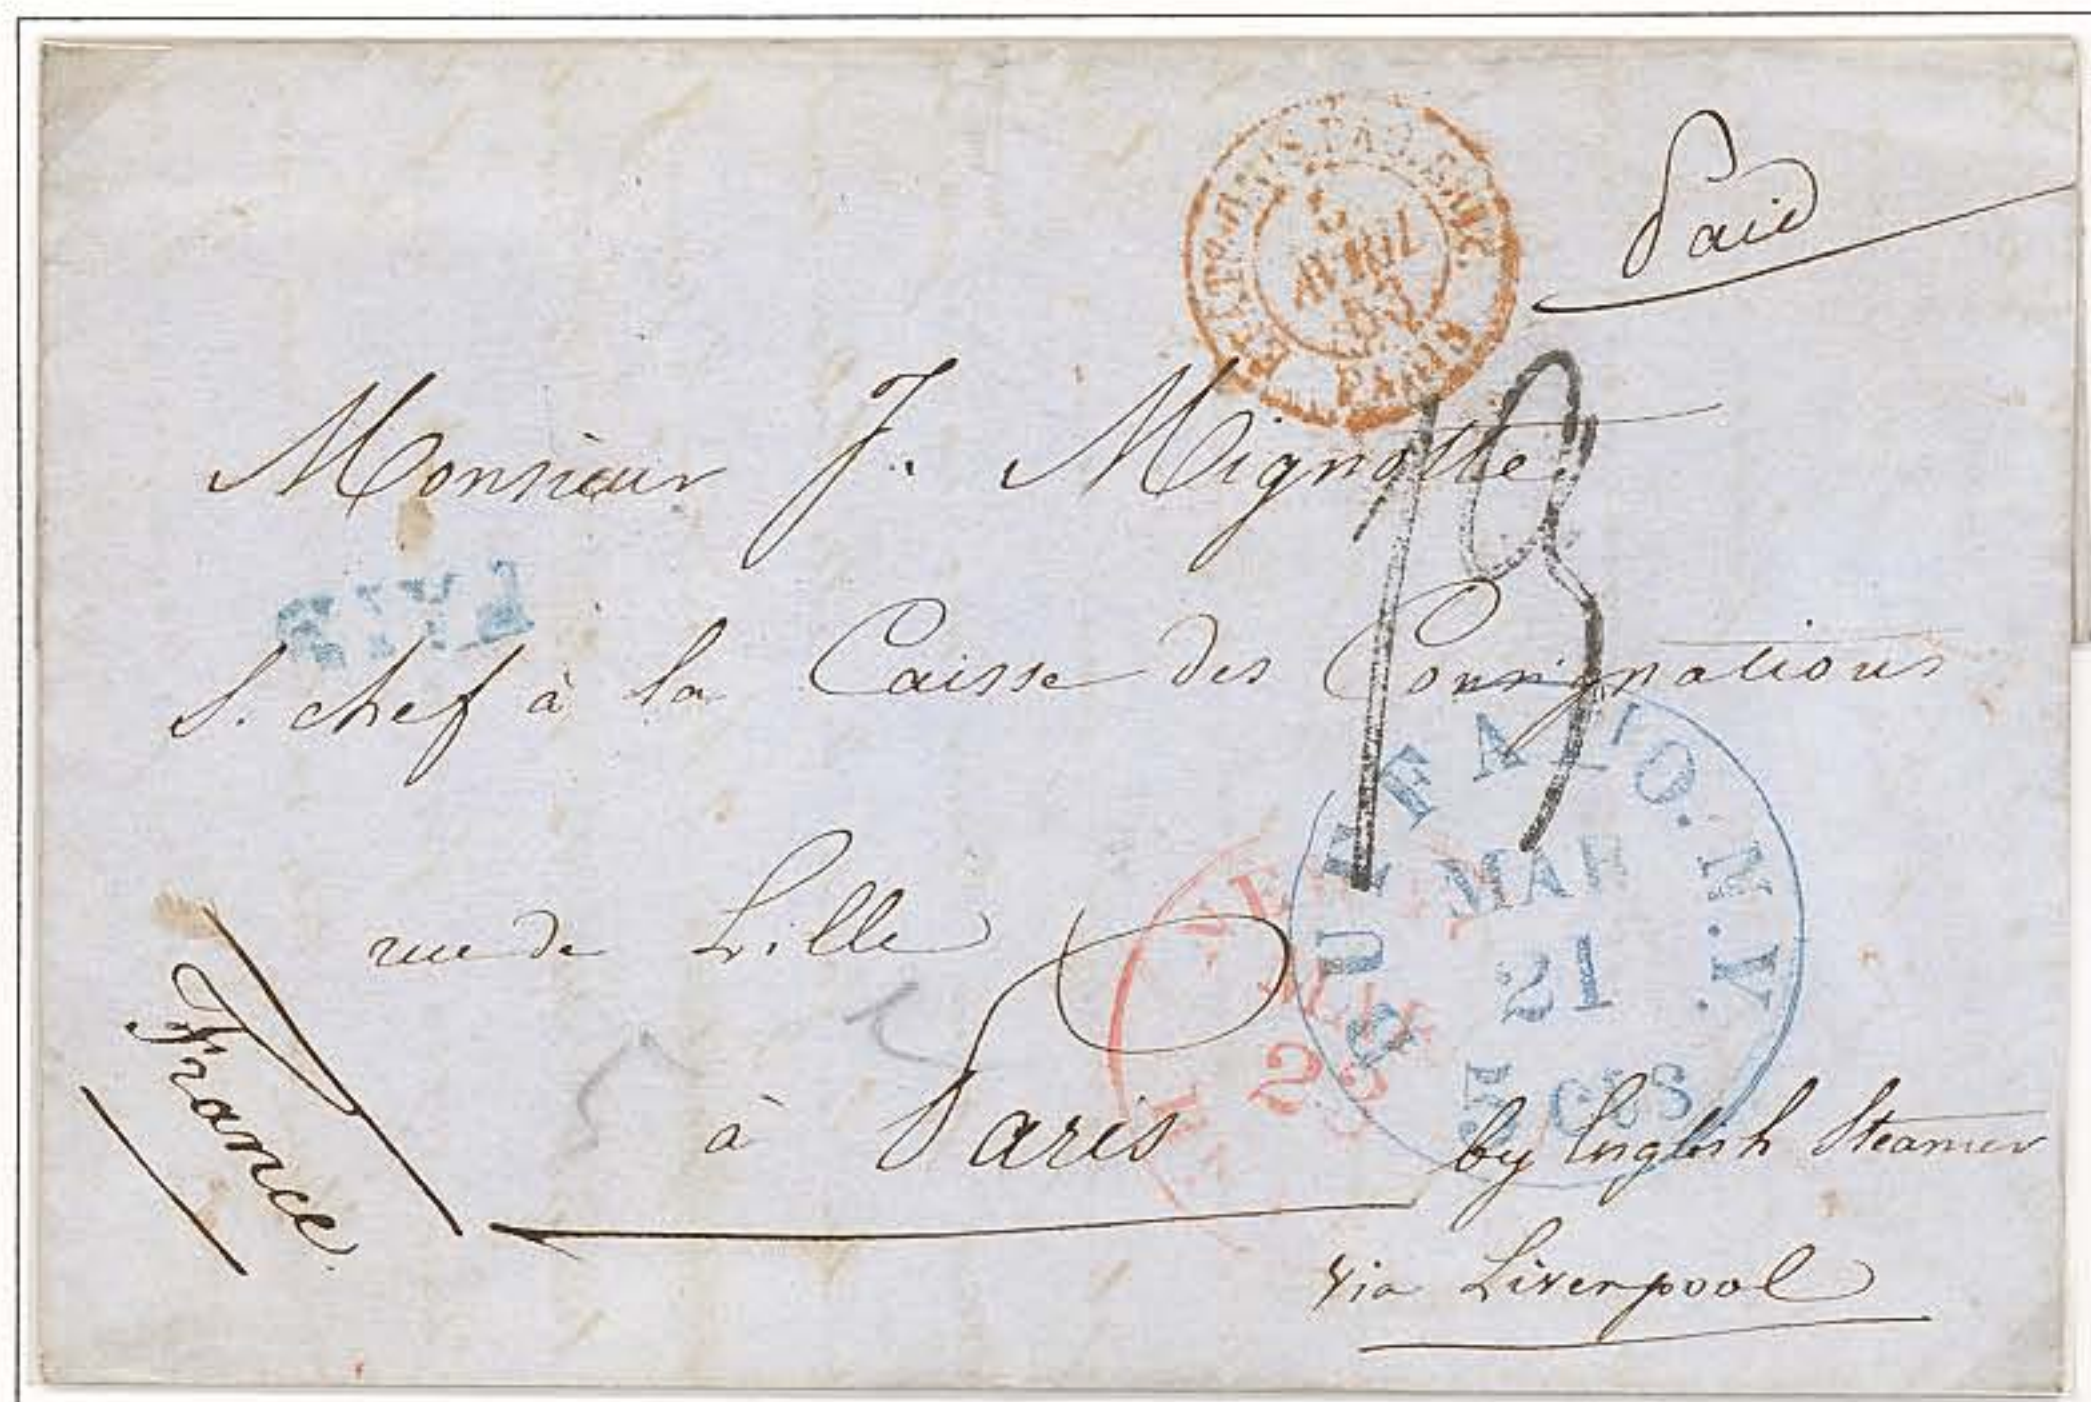 Paid
5
AVRIL
53
PARIS
Monsieur J. Mignotte
PAID
S. chef à la Caisse des Consignations
15
BUFFALO. N.Y.
MAR
21
5 Cts
rue de Lille
à Paris
France
by English Steamer
via Liverpool